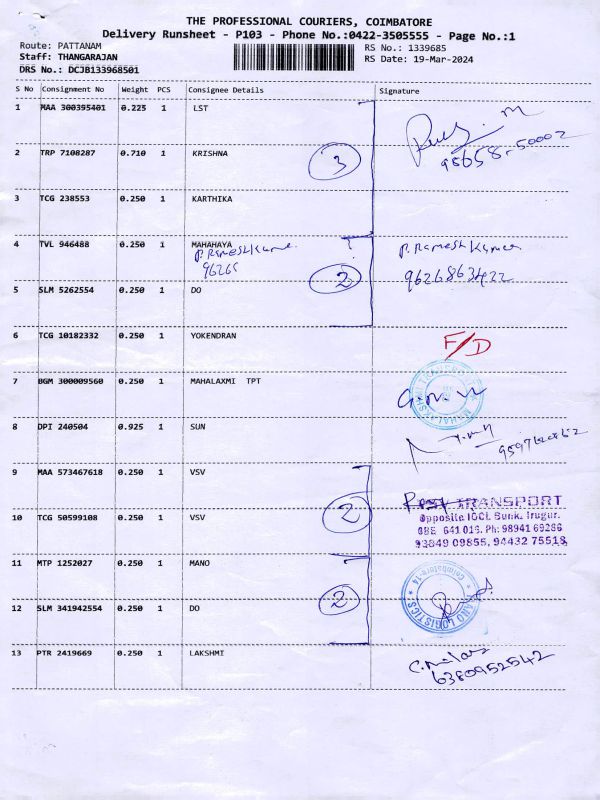 THE PROFESSIONAL COURIERS, COIMBATORE
Delivery Runsheet - P103 - Phone No.:0422-3505555 - Page No.:1
Route: PATTANAM
RS No.: 1339685
Staff: THANGARAJAN
RS Date: 19-Mar-2024
DRS No.: DCJB133968501
S No Consignment No Weight PCS Consignee Details Signature
1 MAA 300395401 0.225 1 LST
95658-50002
2 TRP 7108287 0.710 1 KRISHNA 3
3 TCG 238553 0.250 1 KARTHIKA
4 TVL 946488 0.250 1 MAHAHAYA P. Ramesh Kumar
P. Ramesh Kumar
96266 2 9626863422
5 SLM 5262554 0.250 1 DO
6 TCG 10182332 0.250 1 YOKENDRAN F/D
7 BGM 300009560 0.250 1 MAHALAXMI TPT
8 DPI 240504 0.925 1 SUN
9 MAA 573467618 0.250 1 VSV
TRANSPORT
10 TCG 50599108 0.250 1 VSV 2 Opposite IOCL Bunk, Irugur.
CBE 641 016. Ph: 98941 69286
93849 09855, 94432 75518
11 MTP 1252027 0.250 1 MANO
12 SLM 341942554 0.250 1 DO 2 MANO LOGISTICS Coimbatore-14
13 PTR 2419669 0.250 1 LAKSHMI
6380952542